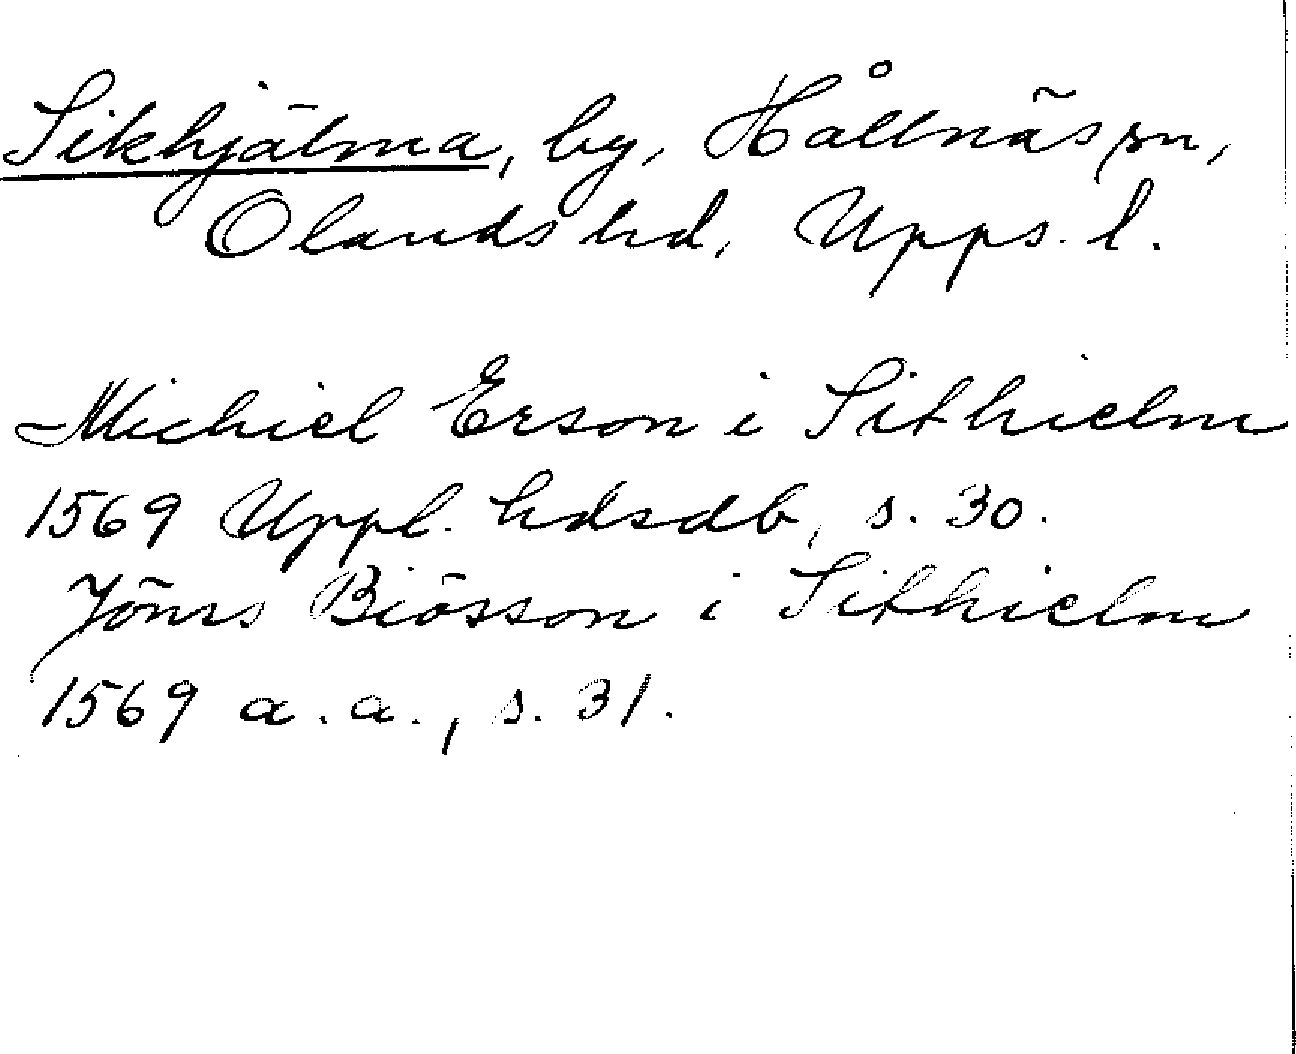 Sikhjälma, by, Hållnäs sn,
Olands hd, Upps. l.
Michiel Erson i Sithielm
1569 Uppl. hdsdb, s. 30.
Jöns Biösson i Sithielm
1569 a.a., s. 31.